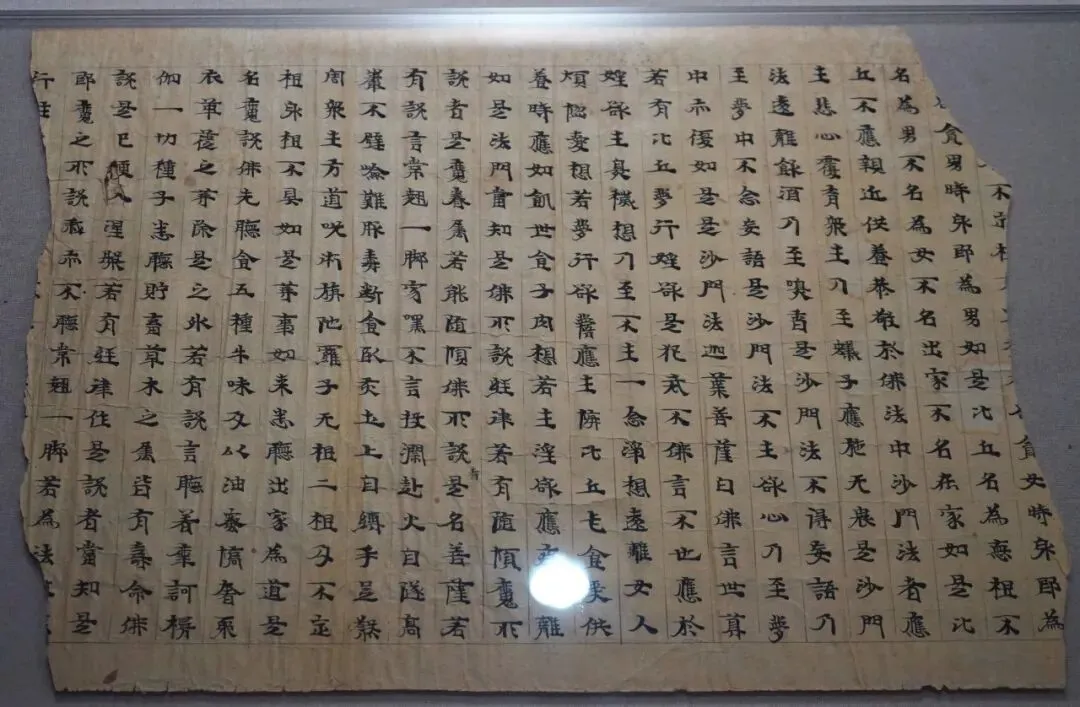 不定根
貪女時身即為
貪男時身即為男如是比丘名為惡根不
名為男不名為女不名出家不名在家如是比
丘不應親近供養恭敬於佛法中沙門法者應
生悲心覆育眾生乃至蟻子應施无畏是沙門
法遠離飲酒乃至嗅香是沙門法不得妄語乃
至夢中不念妄語是沙門法不生欲心乃至夢
中亦復如是是沙門法迦葉菩薩白佛言世尊
若有比丘夢行婬欲是犯戒不佛言不也應於
婬欲生臭穢想乃至不生一念淨想遠離女人
煩惱愛想若夢行欲寤應生悔比丘乞食受供
養時應如飢世食子肉想若生淫欲應離
如是法門當知是佛所說經律若有隨順魔所
說者是魔眷屬若能隨順佛所說者是名菩薩若
有說言常翹一脚寂嘿不言投淵赴火自墜高
巖不避嶮難服毒斷食臥灰土上自縛手足殺
害眾生方道呪術旃陀羅子无根二根及不定
根身根不具如是等事如來悉聽出家為道是
名魔說佛先聽食五種牛味及以油蜜憍奢耶
衣革屣之等除是之外若有說言聽著摩訶楞
伽一切種子悉聽貯畜草木之屬皆有壽命佛
說是已便入涅槃若有經律作是說者當知是
即魔之所說我亦不聽常翹一脚若為法
行住